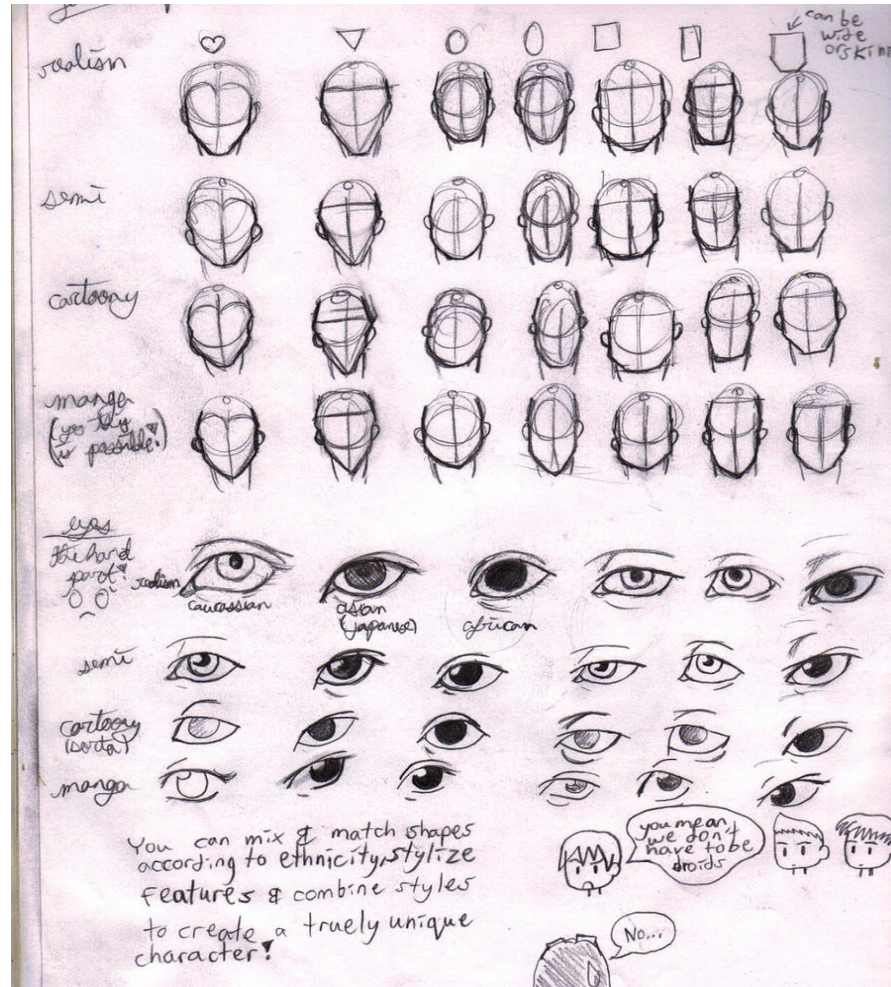 can be
wide
or skinny
realism
semi
cartoony
manga
(yes this
is possible!)
eyes
the hard
part!
realism
caucassian
asian
(japanese)
african
semi
cartoony
(sorta)
manga
You can mix & match shapes
according to ethnicity, stylize
features & combine styles
to create a truely unique
character!
you mean
we don't
have to be
droids
No...